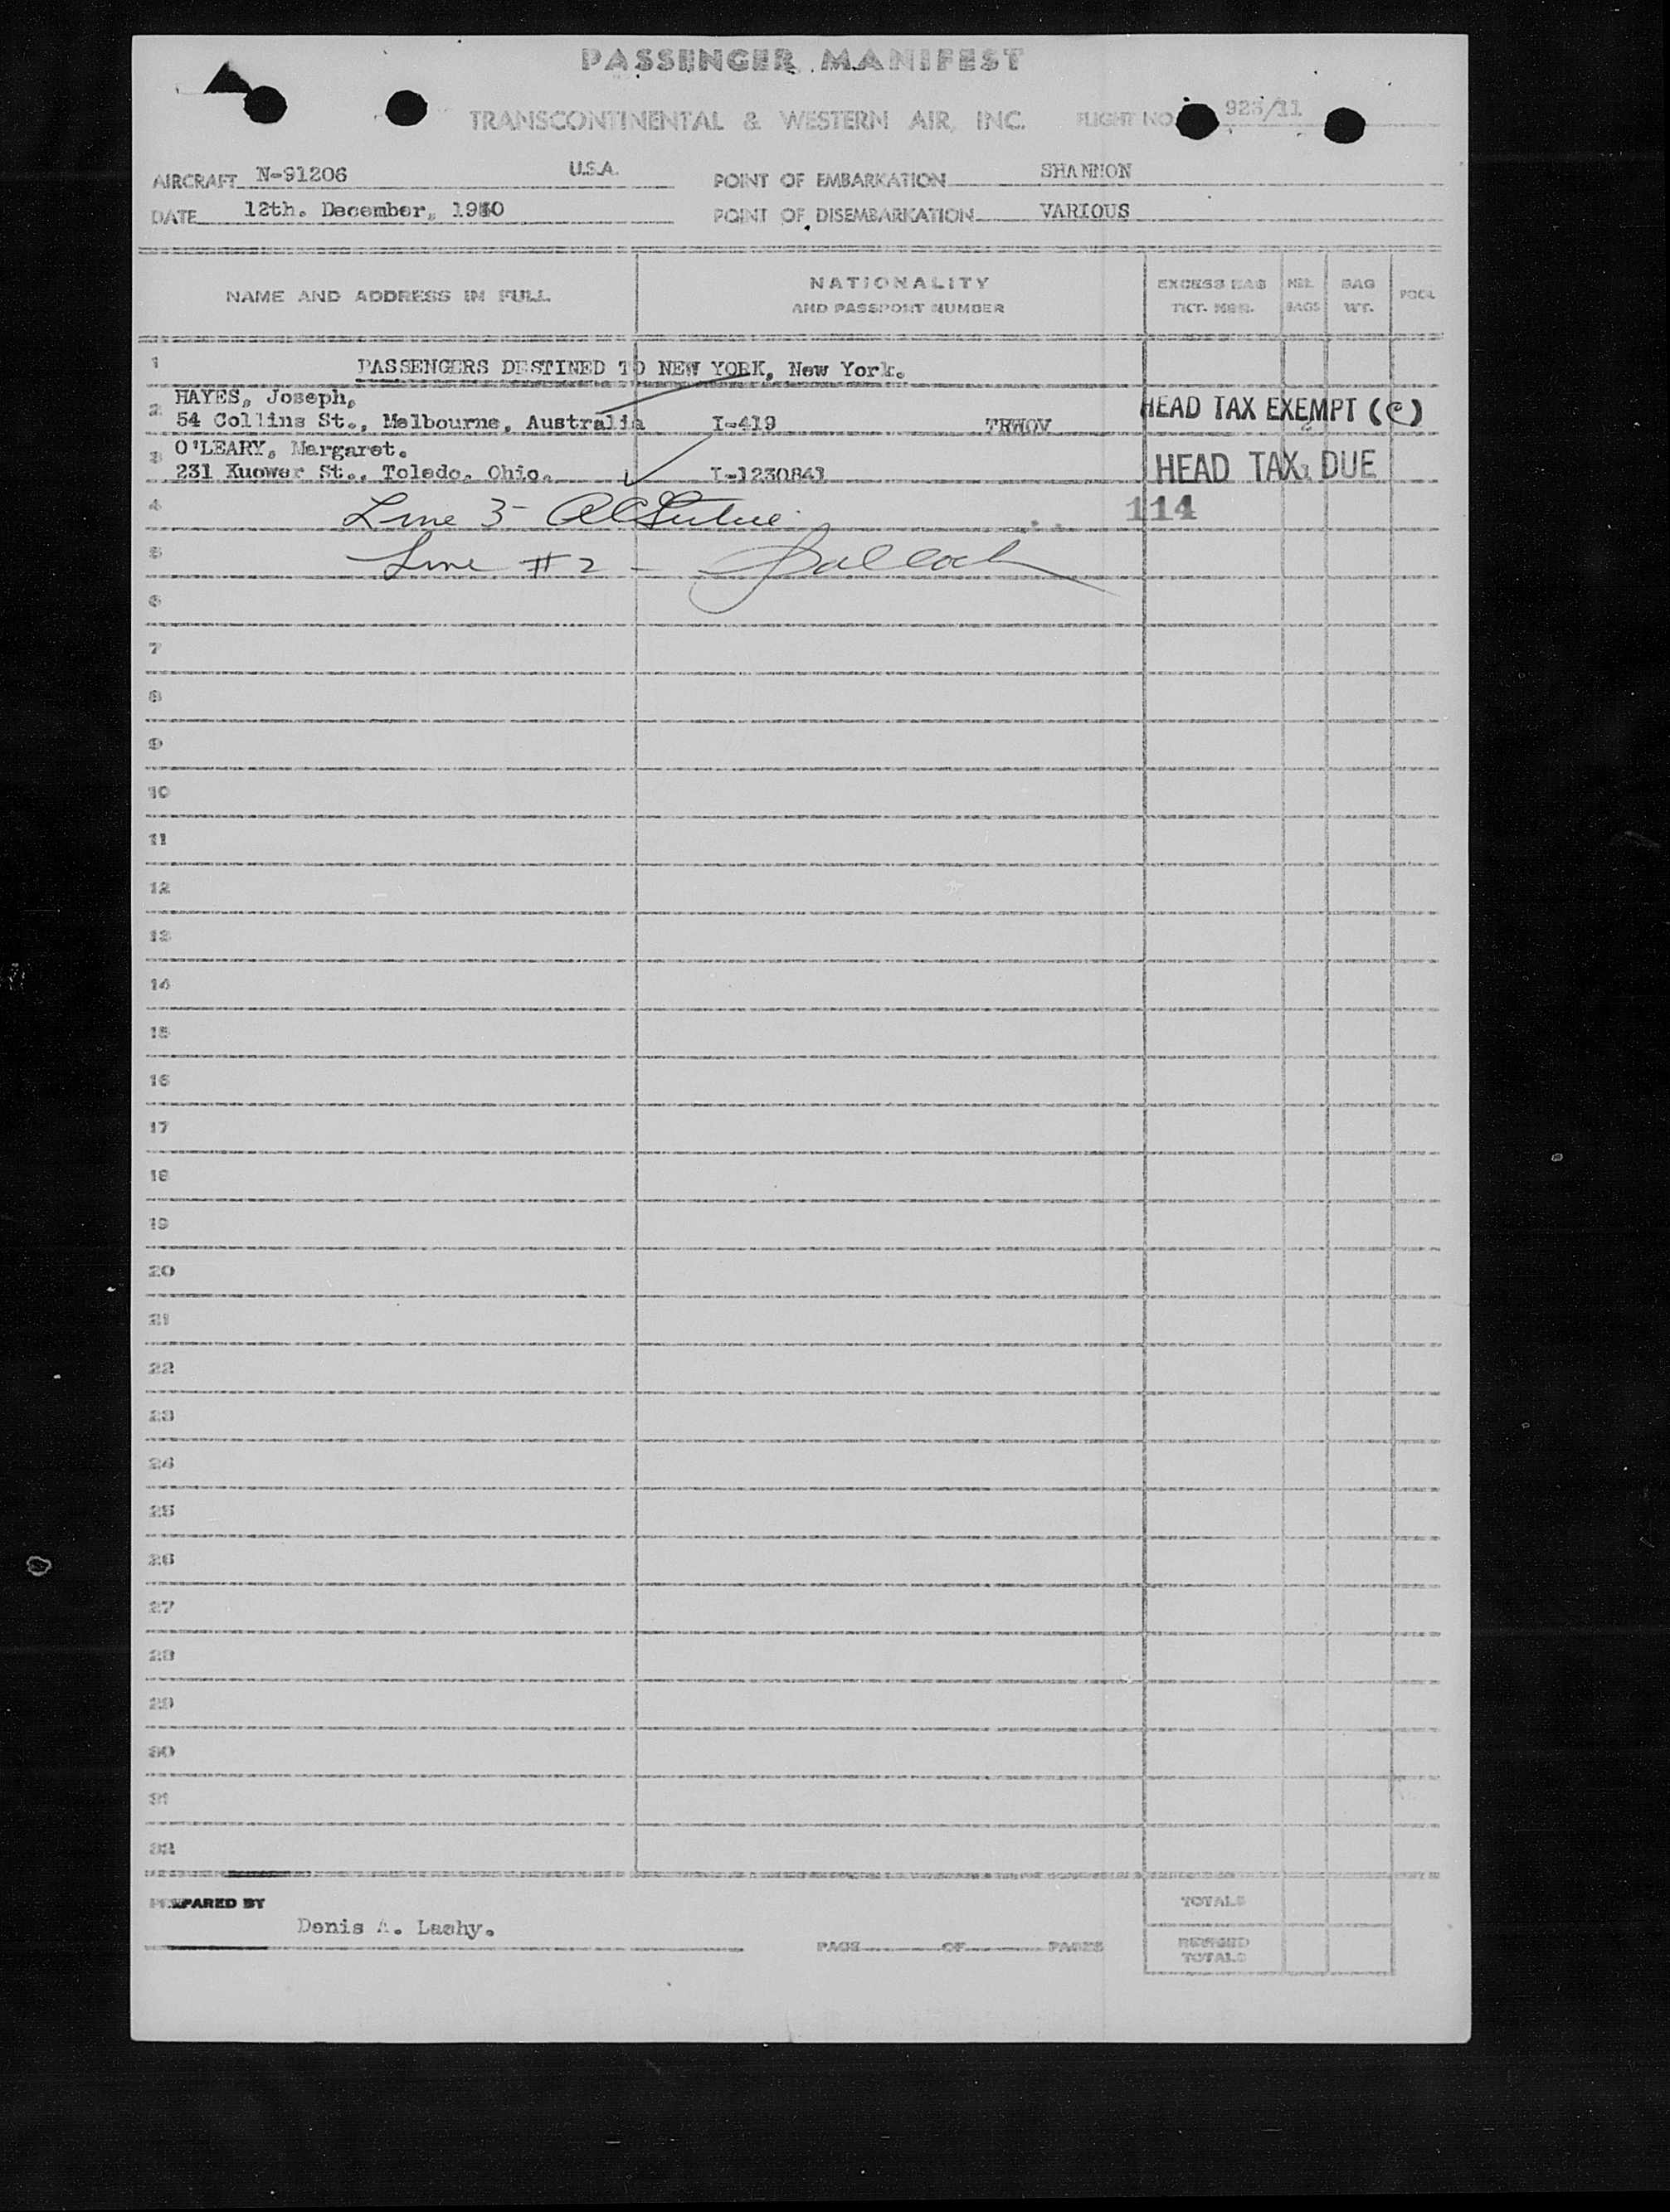 PASSENGER MANIFEST
TRANSCONTINENTAL & WESTERN AIR, INC. FLIGHT NO /11
AIRCRAFT N-91206 U.S.A. POINT OF EMBARKATION SHANNON
DATE 12th. December, 1950 POINT OF DISEMBARKATION VARIOUS
NAME AND ADDRESS IN FULL
NATIONALITY
AND PASSPORT NUMBER
EXCESS BAG
TKT. NBR.
NBR.
BAGS
BAG
WT.
POOL
1 PASSENGERS DESTINED TO NEW YORK, New York.
HAYES, Joseph,
2 54 Collins St., Melbourne, Australia I-419 TRWOV HEAD TAX EXEMPT (C)
O'LEARY, Margaret.
3 231 Kuower St., Toledo, Ohio. I-1230841 HEAD TAX DUE
4 Line 3- 114
5 Line #2 -
6
7
8
9
10
11
12
13
14
15
16
17
18
19
20
21
22
23
24
25
26
27
28
29
30
31
32
PREPARED BY
Denis A. Leahy.
PAGE OF PAGES
TOTALS
REVISED
TOTALS